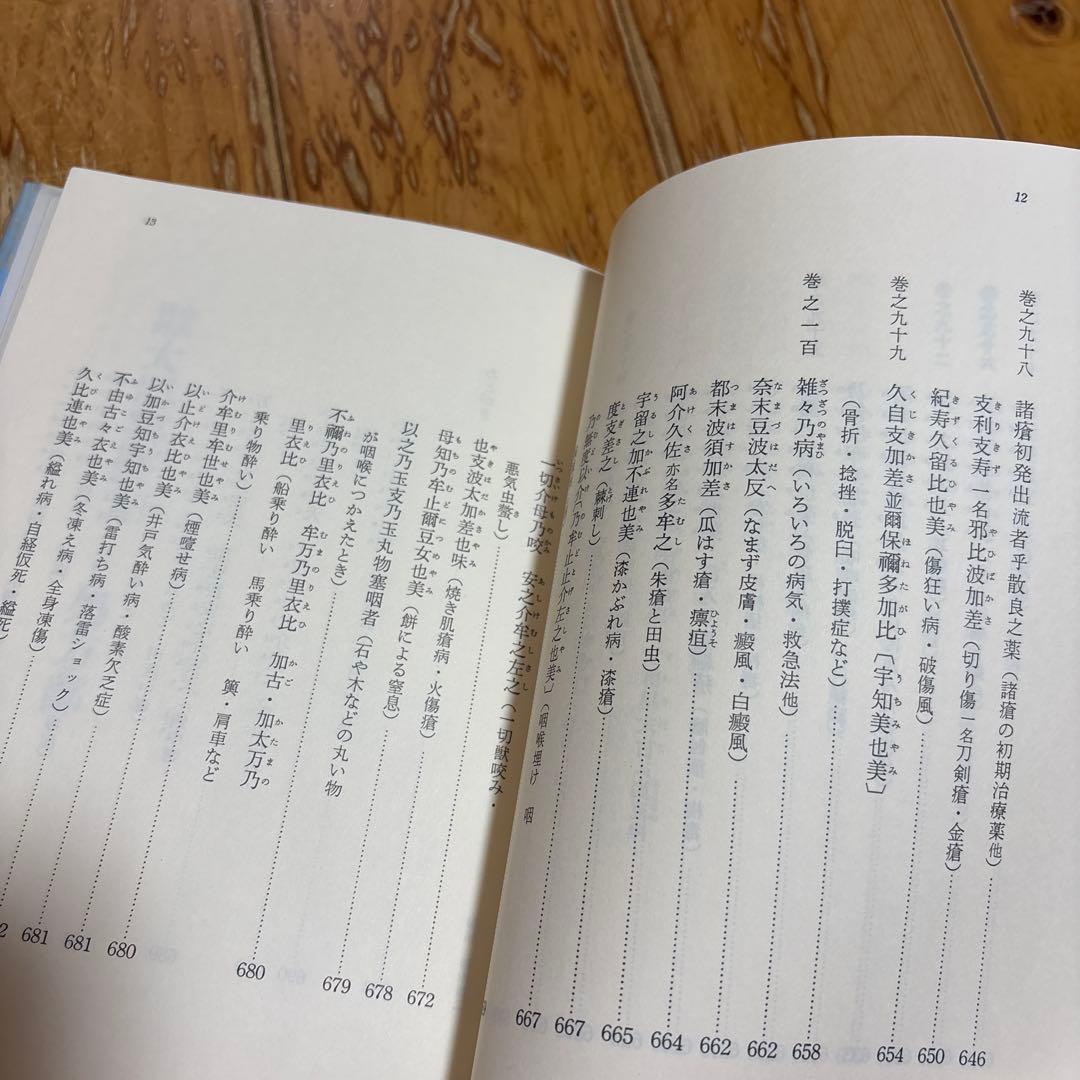 12
巻之九十八
諸瘡初発出流者乎散良之薬（諸瘡の初期治療薬他）……646
支利支寿 一名邪比波加差（切り傷一名刀剣瘡・金瘡）……650
紀寿久留比也美（傷狂い病・破傷風）……654
巻之九十九
久自支加差並爾保禰多加比〔宇知美也美〕
（骨折・捻挫・脱臼・打撲症など）……658
巻之一百
雑々乃病（いろいろの病気・救急法他）……662
奈末豆波太反（なまず皮膚・癜風・白癜風）……662
都末波須加差（瓜はす瘡・瘭疽）……664
阿介久佐 亦名 多牟之（朱瘡と田虫）……665
宇留之加不連也美（漆かぶれ病・漆瘡）……667
度支差之（棘刺し）……667
（咽喉埋け 咽
13
一切介母乃咬 安之介牟之左之（一切獣咬み・
悪気虫螫し）
也支波太加差也味（焼き肌瘡病・火傷瘡）……672
母知乃牟止爾豆女也美（餅による窒息）……678
以之乃玉支乃玉丸物塞咽者（石や木などの丸い物
が咽喉につかえたとき）……679
不禰乃里衣比 牟万乃里衣比 加古・加太万乃
里衣比（船乗り酔い 馬乗り酔い 輿・肩車など
乗り物酔い）……680
介牟里牟世也美（煙噎せ病）
以止介衣比也美（井戸気酔い病・酸素欠乏症）……680
以加豆知宇知也美（雷打ち病・落雷ショック）……681
不由古々衣也美（冬凍え病・全身凍傷）……681
久比連也美（縊れ病・自経仮死・縊死）